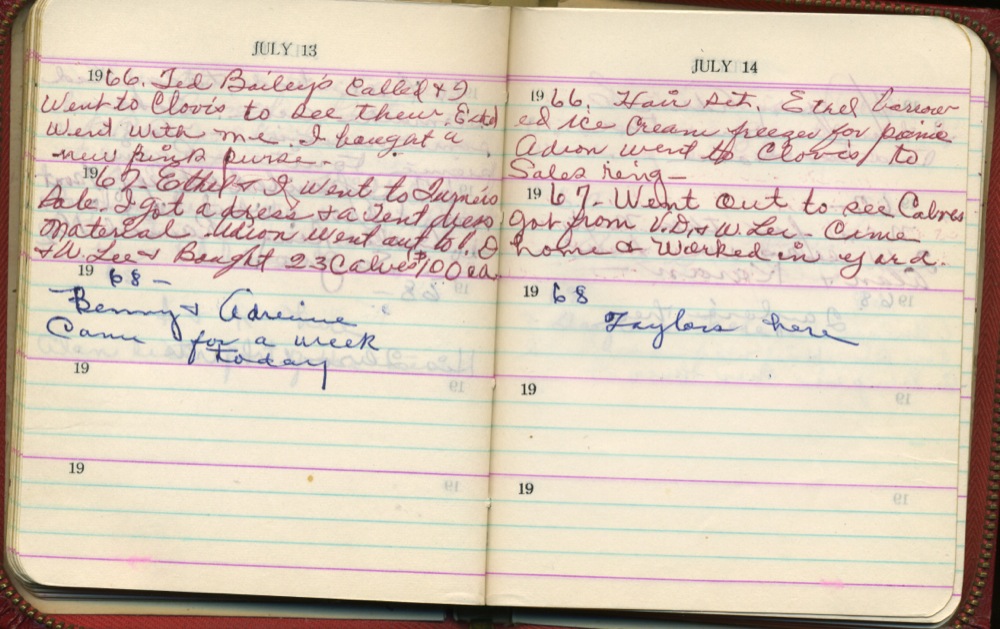 JULY 13
1966. Ted Bailey's Called & I
Went to Clovis to see them. Ethel
Went with me. I bought a
new pink purse.
1967. Ethel & I Went to
Sale. I got a dress & a Tent dress
Material. Adron Went out to V. D
& W. Lee & Bought 23 Calves $100 ea.
19 68 -
Benny & Adreine
Came for a week
today
19
19
JULY 14
1966. Hair set. Ethel borrow
ed ice cream freezer for picnic
Adron went to Clovis to
Sales ring -
1967. Went out to see Calves
got from V.D. & W. Lee. Came
home & Worked in yard.
19 68
Taylors here
19
19